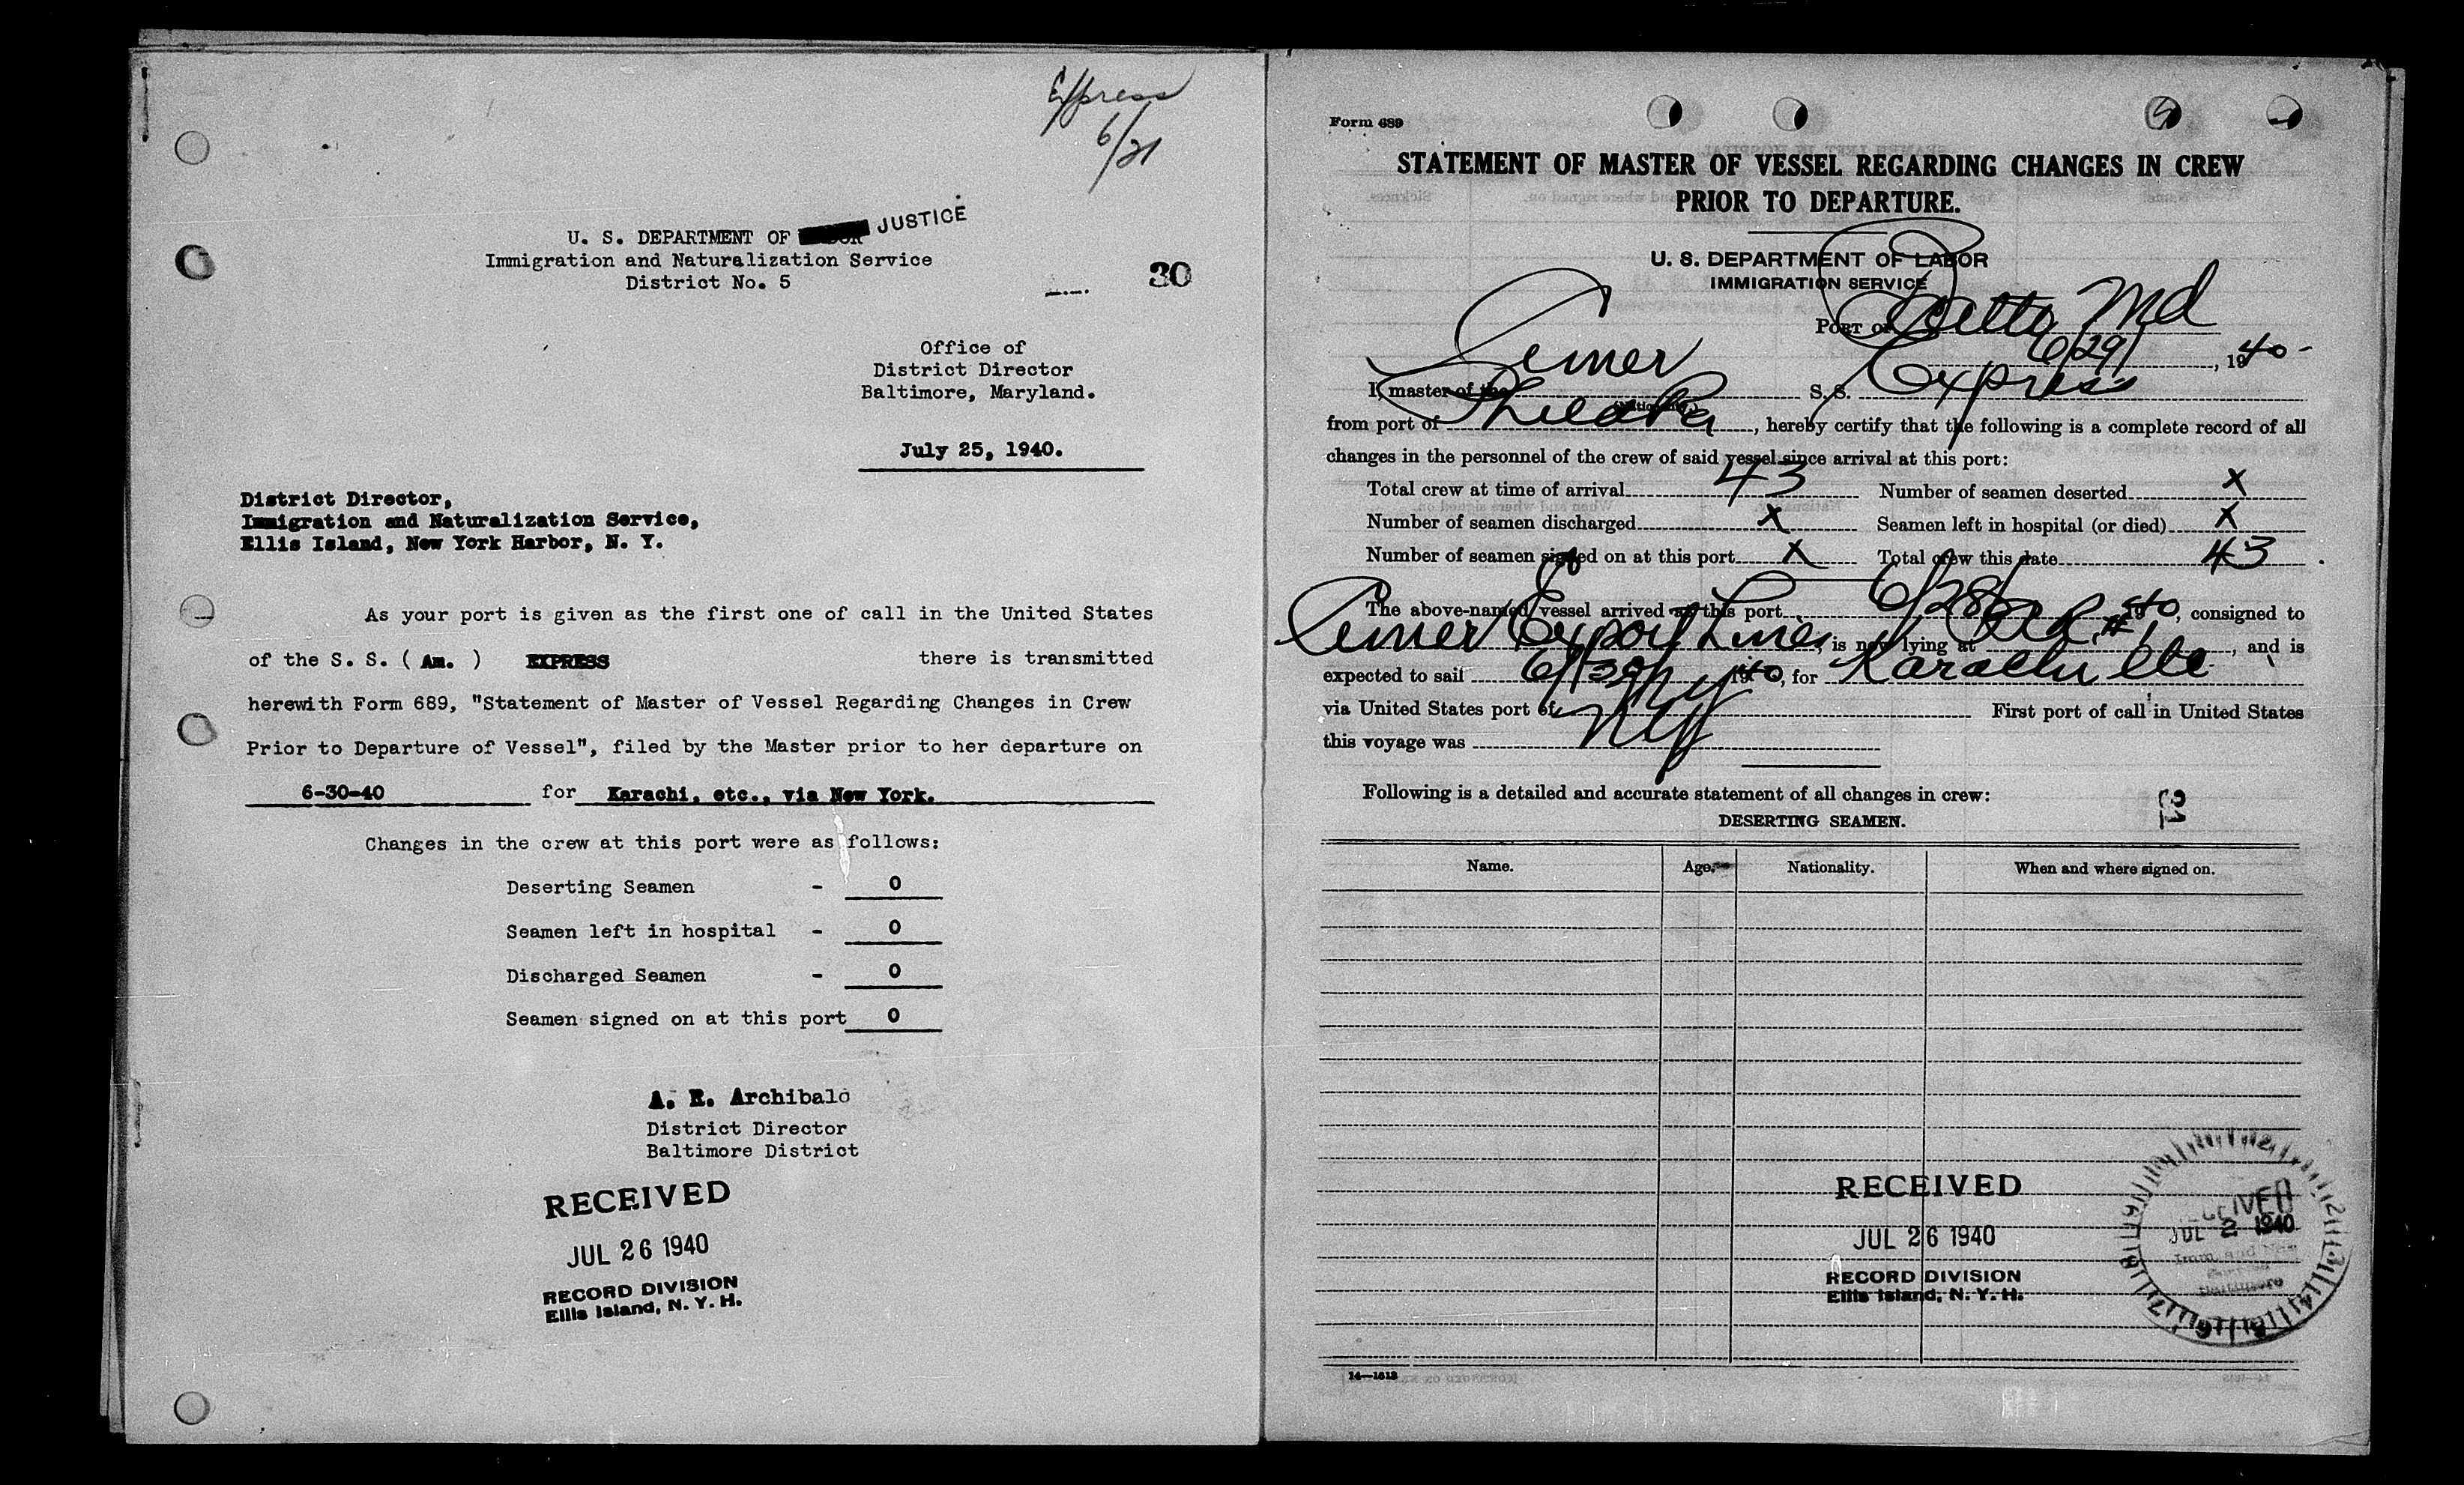 Express
6/21
U. S. DEPARTMENT OF JUSTICE
Immigration and Naturalization Service
District No. 5
30
Office of
District Director
Baltimore, Maryland.
July 25, 1940.
District Director,
Immigration and Naturalization Service,
Ellis Island, New York Harbor, N. Y.
As your port is given as the first one of call in the United States
of the S. S. ( Am. ) EXPRESS there is transmitted
herewith Form 689, "Statement of Master of Vessel Regarding Changes in Crew
Prior to Departure of Vessel", filed by the Master prior to her departure on
6-30-40 for Karachi, etc., via New York.
Changes in the crew at this port were as follows:
Deserting Seamen - 0
Seamen left in hospital - 0
Discharged Seamen - 0
Seamen signed on at this port 0
A. R. Archibald
District Director
Baltimore District
RECEIVED
JUL 26 1940
RECORD DIVISION
Ellis Island, N. Y. H.
Form 689
STATEMENT OF MASTER OF VESSEL REGARDING CHANGES IN CREW
PRIOR TO DEPARTURE.
U. S. DEPARTMENT OF LABOR
IMMIGRATION SERVICE
PORT OF Balto Md
6/29, 1940
I, master of the Amer S. S. Express
from port of Phila Pa, hereby certify that the following is a complete record of all
changes in the personnel of the crew of said vessel since arrival at this port:
Total crew at time of arrival 43 Number of seamen deserted X
Number of seamen discharged X Seamen left in hospital (or died) X
Number of seamen signed on at this port X Total crew this date 43
The above-named vessel arrived at this port 6/28, 1940, consigned to
Amer Export Lines, is now lying at, and is
expected to sail 6/30, 1940, for Karachi etc
via United States port of NY First port of call in United States
this voyage was NY
Following is a detailed and accurate statement of all changes in crew:
31
DESERTING SEAMEN.
Name. Age. Nationality. When and where signed on.
RECEIVED
JUL 26 1940
RECORD DIVISION
Ellis Island, N. Y. H.
JUL 2 1940
Baltimore
14—1613